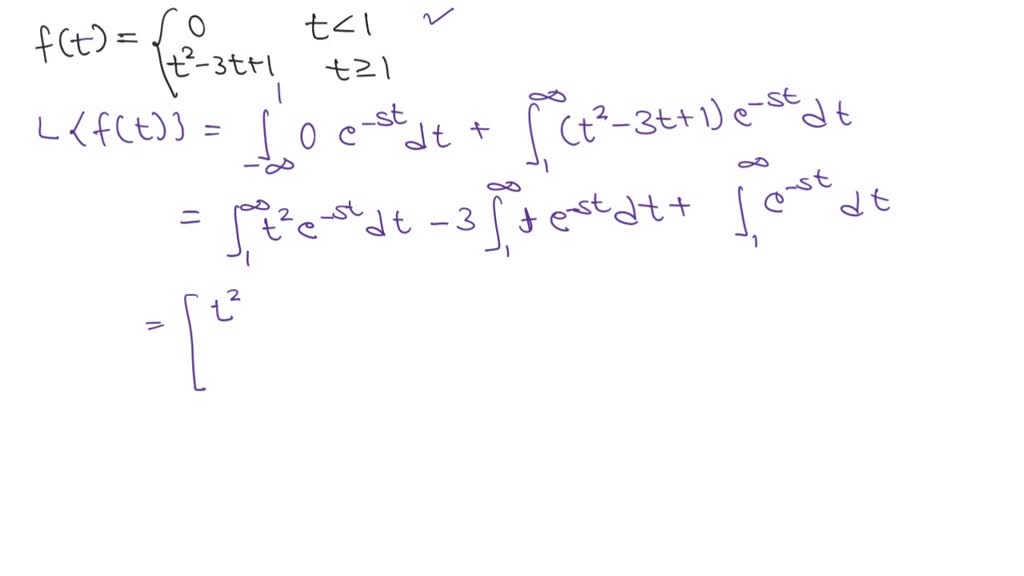 f(t) = { 0 t<1 ✓
t²-3t+1 t≥1
L{f(t)} = ∫_{-∞}^{1} 0 e^{-st} dt + ∫_{1}^{∞} (t²-3t+1) e^{-st} dt
= ∫_{1}^{∞} t² e^{-st} dt - 3 ∫_{1}^{∞} t e^{-st} dt + ∫_{1}^{∞} e^{-st} dt
= [ t²